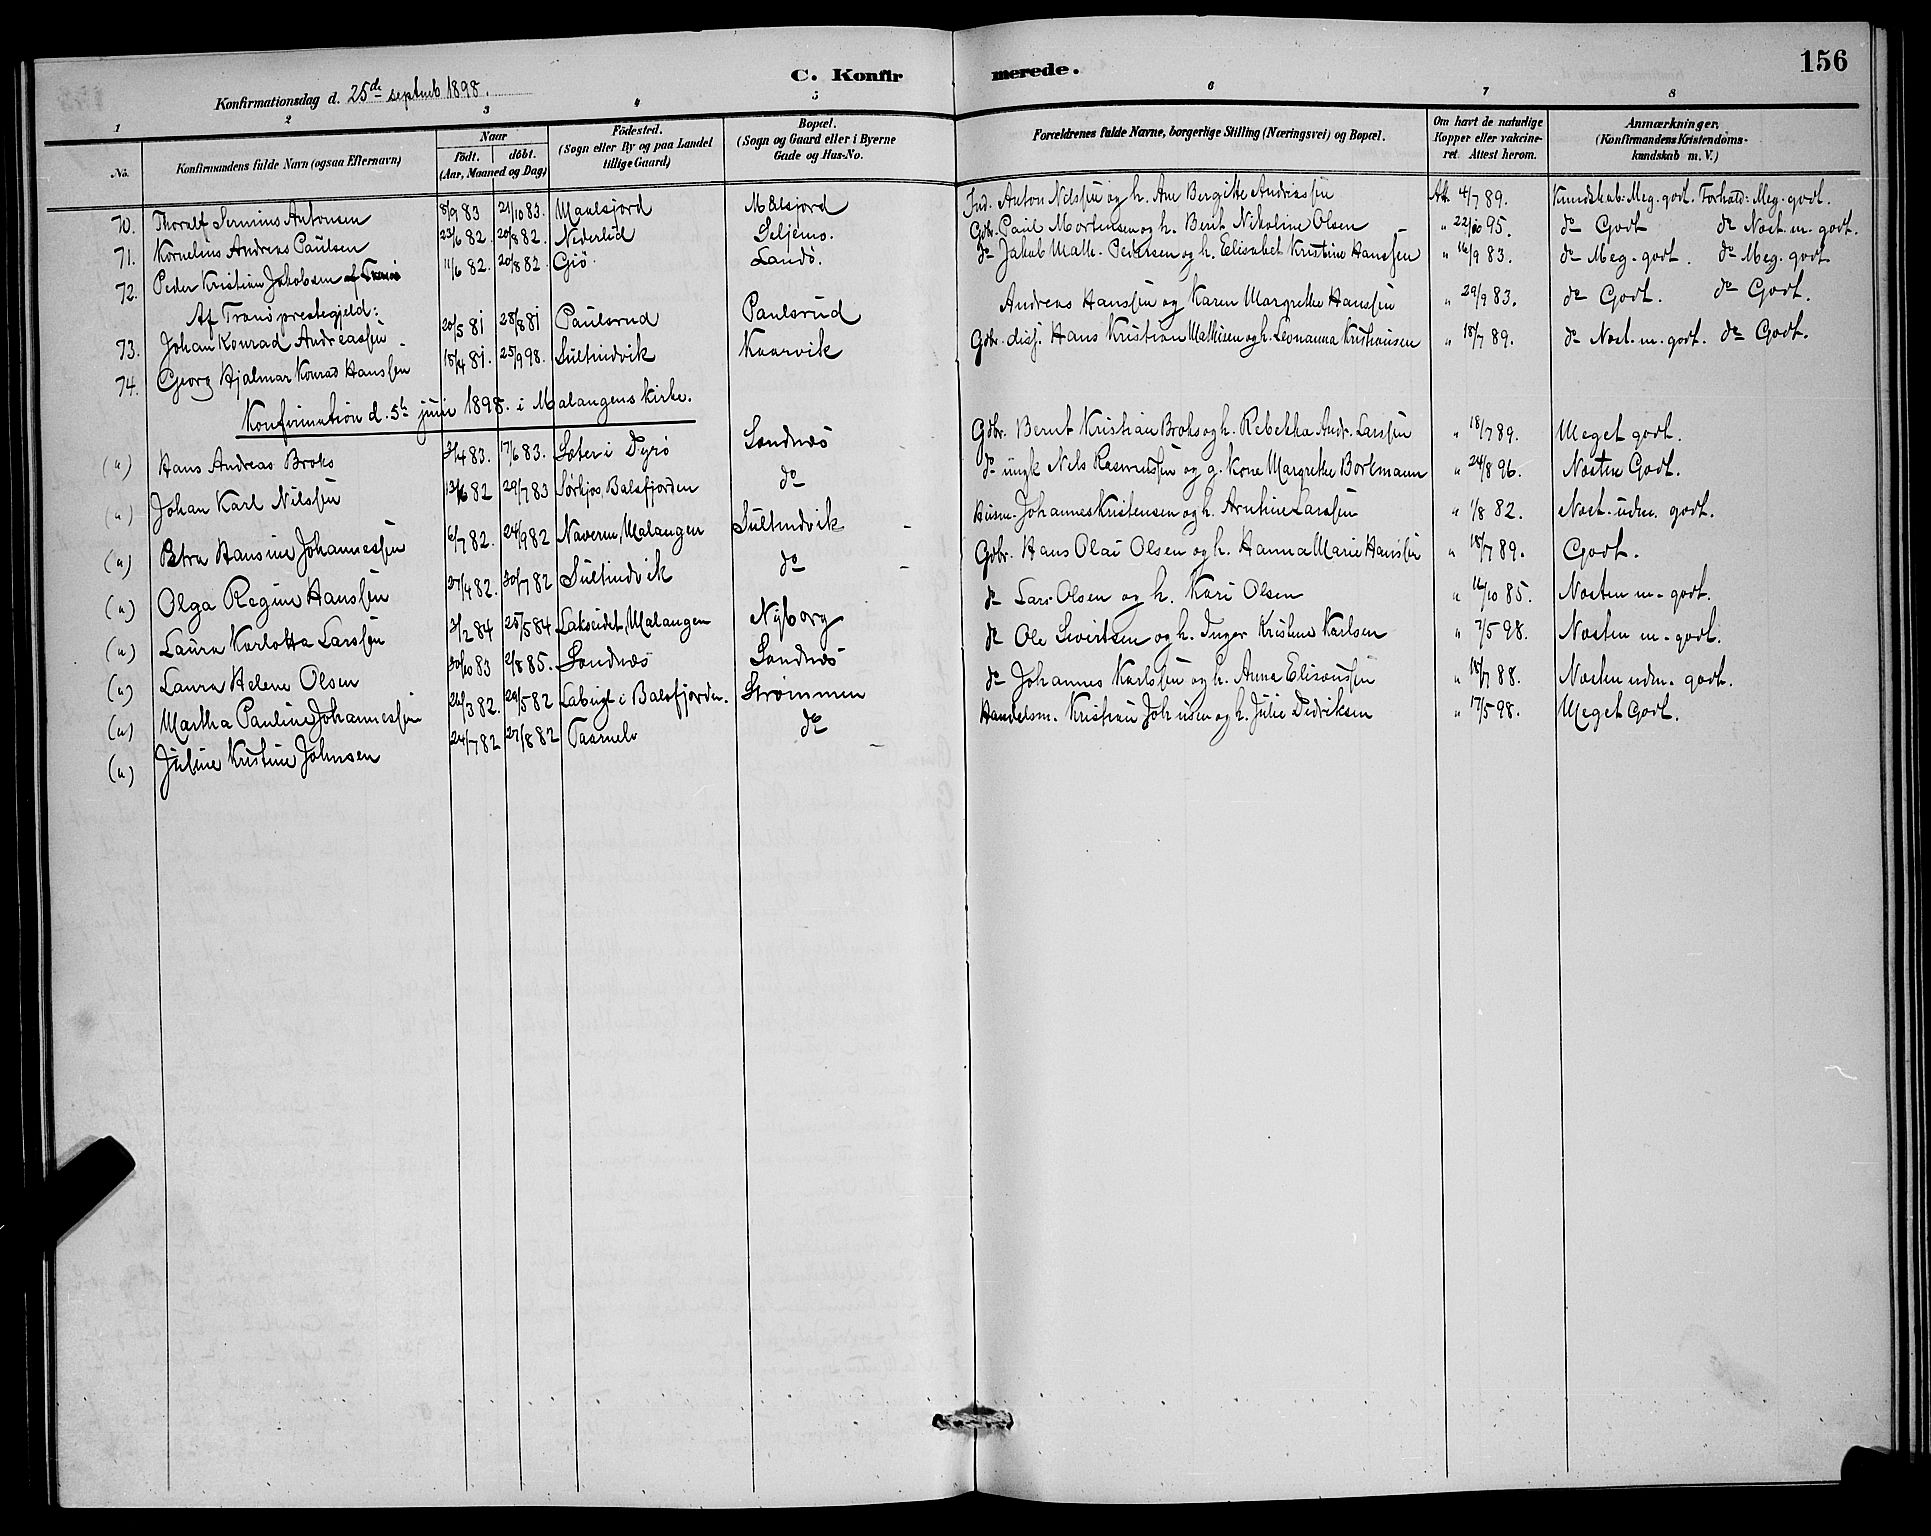 156
C. Konfir merede.
Konfirmationsdag d. 25de septemb 1898.
1 2 3 4 5 6 7 8
No. Konfirmandens fulde Navn (ogsaa Efternavn) Naar födt. döbt. (Aar, Maaned og Dag) Födested. (Sogn eller By og paa Landet tillige Gaard) Bopæl. (Sogn og Gaard eller i Byerne Gade og Hus-No. Forældrenes fulde Navne, borgerlige Stilling (Næringsvei) og Bopæl. Om havt de naturlige Kopper eller vakcineret. Attest herom. Anmærkninger, (Konfirmandens Kristendomskundskab m. V.)
70. Thoralf Antonsen 8/9 83 21/10 83. Maalsjord Mælsjord Ind. Anton Nilssen og h. Ane Bergitte Andriassen Att. 4/7 89. Kundskab: Meg. godt. Forhold: Meg. godt.
71. Kornelius Andreas Paulsen 23/6 82. 20/8 82. Gdbr. Paul Mortensen og h. Berit Nikoline Olsen " 22/10 95. do Godt do Næst. m. godt.
72. Peder Kristian Jakobsen af Tranö 11/6 82. 20/8 82. Giö Landö. do Jakob Math. Pedersen og h. Elisabet Kristine Hanssen " 16/9 83. do Meg. godt. do Meg. godt
Af Tranö prestegjeld:
73. Johan Konrad Andreassen 20/5 81 28/8 81 Paulsrud Paulsrud Andreas Hanssen og Karen Margrethe Hanssen " 29/9 83. do Godt. do Godt.
74. Georg Hjalmar Konrad Hanssen 18/4 81. 25/9 98. Sultindvik Kaarvik Gdbr. disp. Hans Kristian Mathisen og h. Leonanna Kristiansen " 18/7 89. do Næst. m. godt. do Godt.
Konfirmation d. 5te juni 1898. i Malangens kirke.
(u) Hans Andreas Broks 3/4 83. 17/6 83. Sæter i Dyrö Sandnæs Gdbr. Bernt Kristian Broks og h. Rebekka Andr. Larssen " 18/7 89. Meget godt.
(u) Johan Karl Nilssen 13/6 82 29/7 83 Balsfjorden do do ungk Nils Rasmussen og g. Kone Margrethe " 24/8 96. Næsten Godt.
(u) Petra Hansine Johannessen 6/7 82. 24/9 82 Malangen Sultindvik Johannes Kristensen og h. Arntine Larssen " 1/8 82. Næst. uden. godt.
(u) Olga Regine Hanssen 27/4 82. 30/7 82 Sultindvik do Gdbr. Hans Olai Olsen og h. Hanna Marie Hanssen " 18/7 89. Godt.
(u) Laura Karlotta Larssen 3/2 84 25/5 84 Lakseidet, Malangen Nyborg do Lars Olsen og h. Kari Olsen " 16/10 85. Næsten m. godt.
(u) Laura Helene Olsen 30/10 83 2/8 85. Sandnæs Sandnæs do Ole Sivertsen og h. Inger Kristine Karlsen " 7/5 98. Næsten m. godt.
(u) Martha Pauline Johannessen 26/3 82. 29/5 82 i Balsfjorden. Strömmen do Johannes Karlssen og h. Anna Eliseussen " 18/7 88. Næsten uden. godt.
(u) Juline Kristine Johnsen 24/7 82 27/8 82 Taarnelv do Handelsm. Kristian Johnsen og h. Julie Didriksen " 17/5 98. Meget Godt.